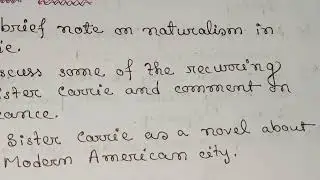 brief note on naturalism in
ie.
scuss some of the recurring
ister Carrie and comment on
cance.
Sister Carrie as a novel about
Modern American city.